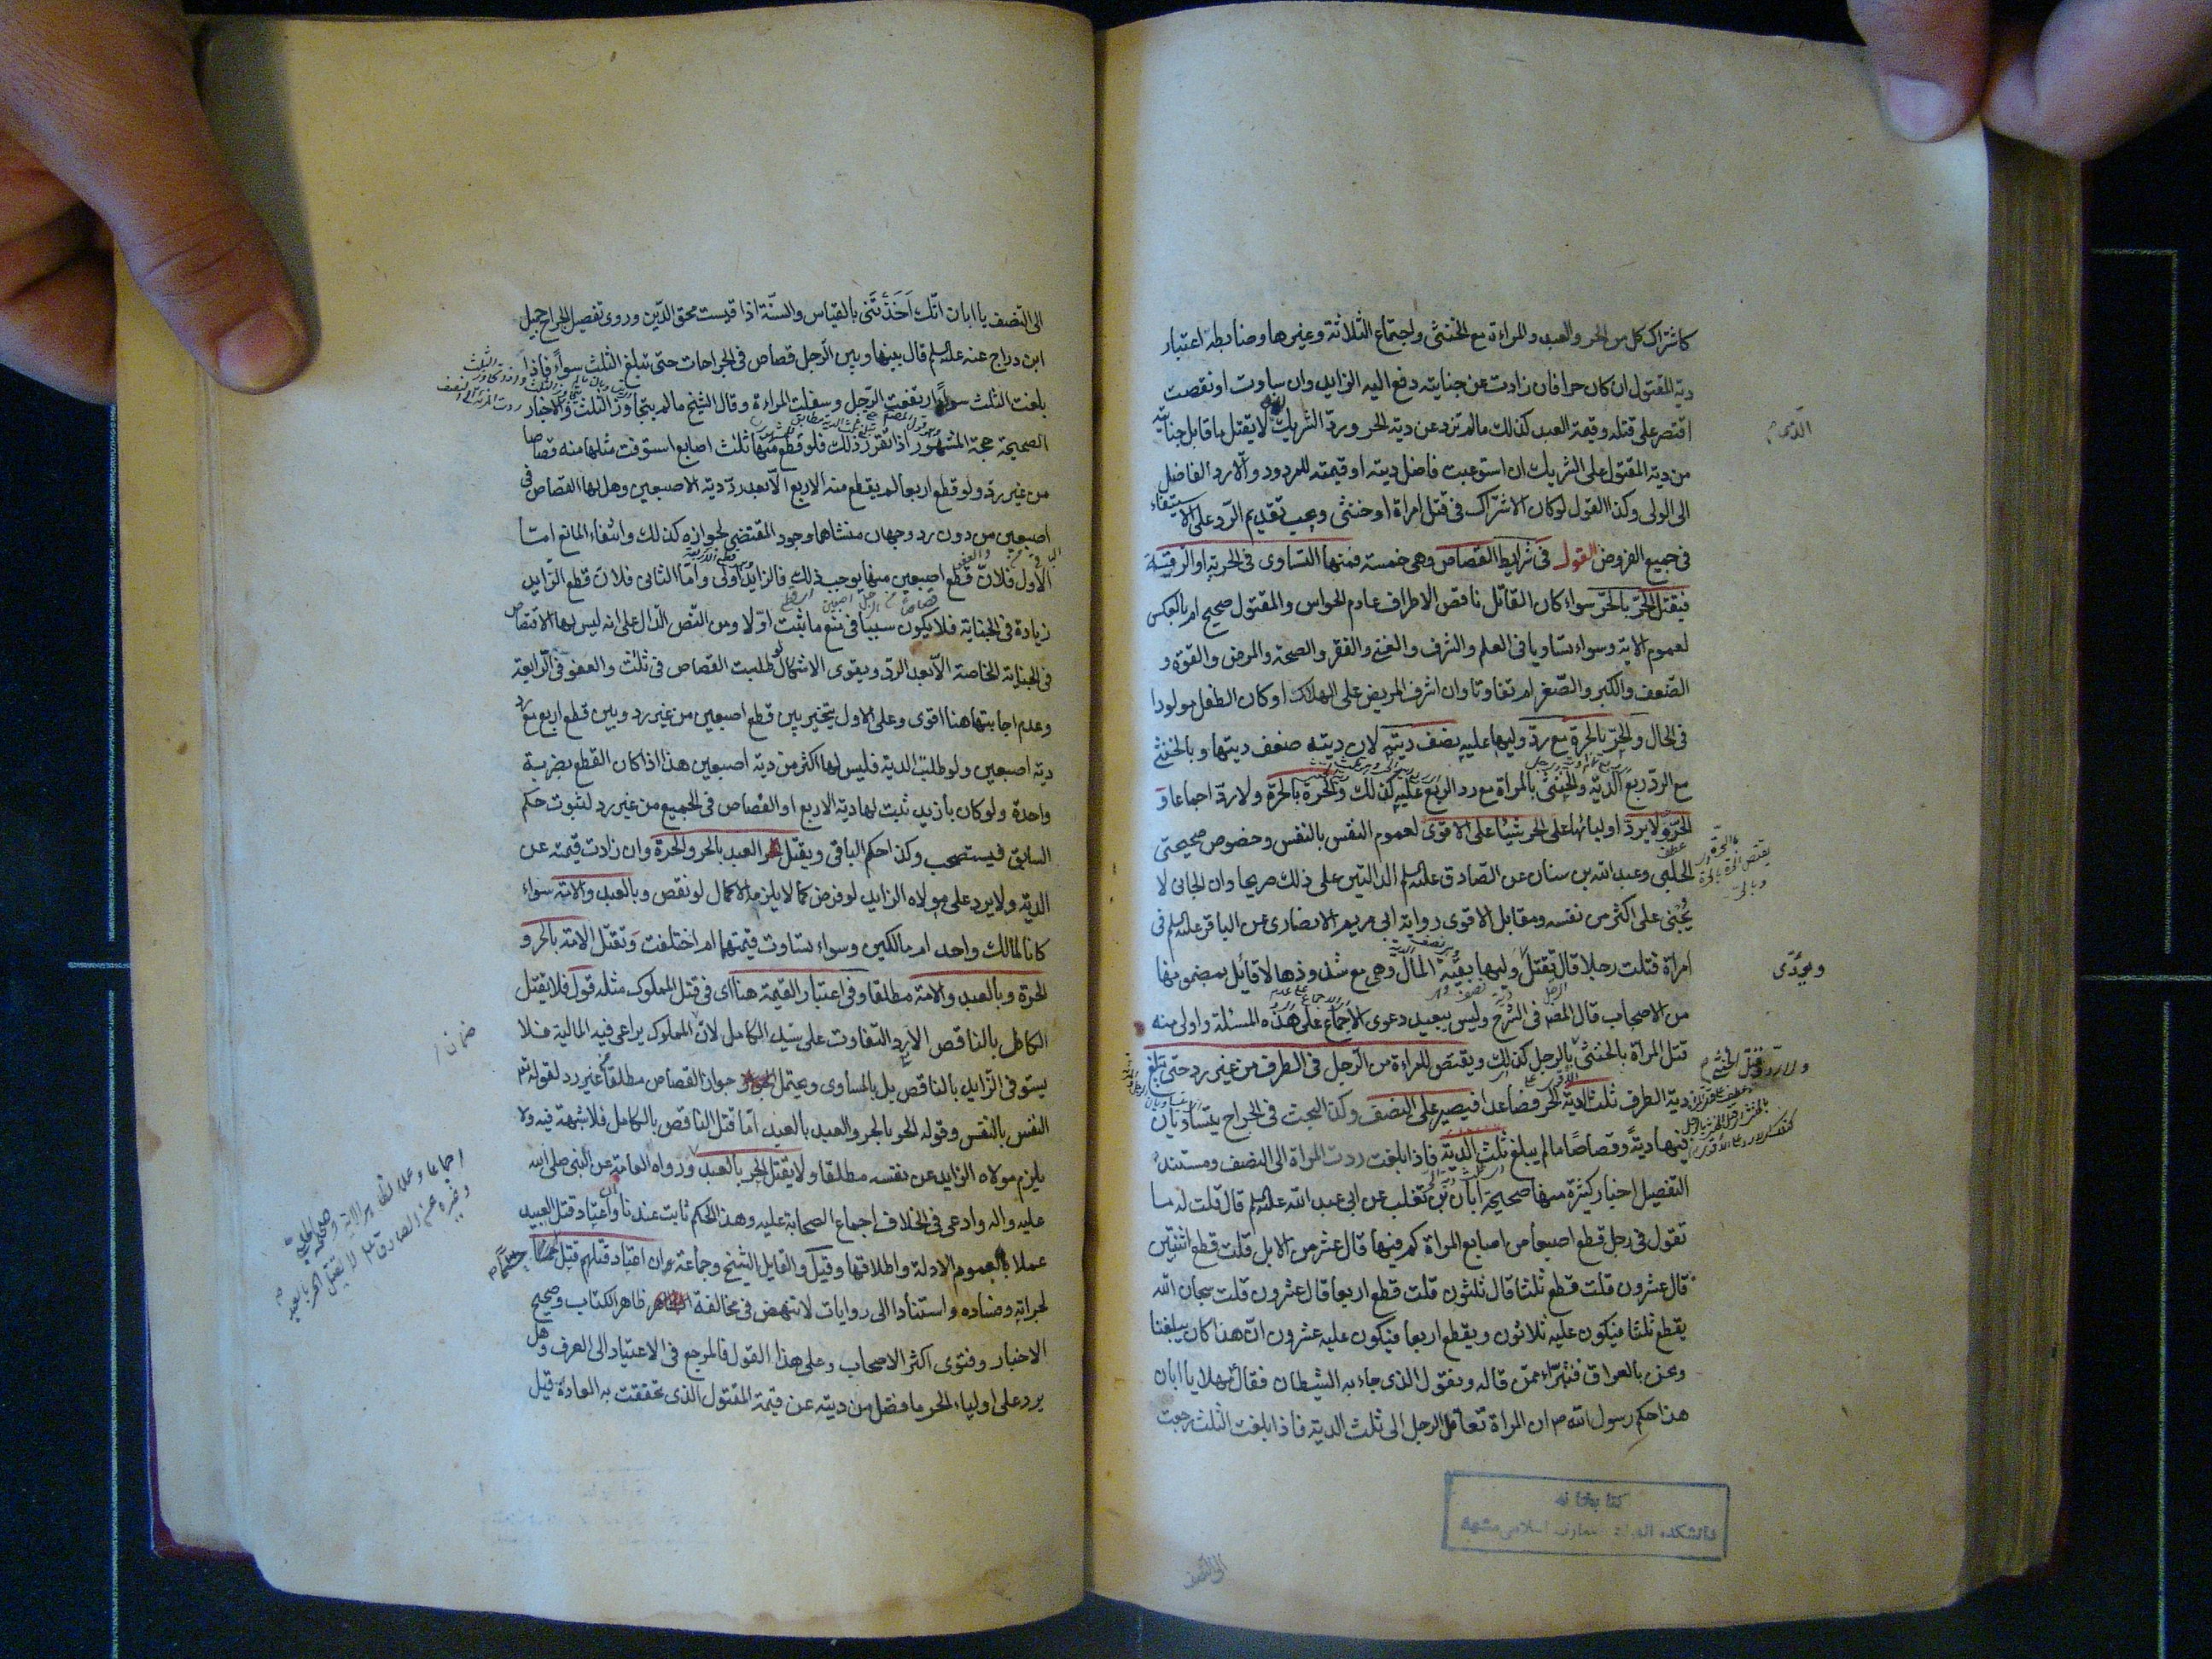 كاشتراك كل من الحر والعبد والمراءة مع الخنثى واجتماع الثلاثة وغيرها وضابطه اعتبار
دية المقتول ان كان حرا فان زادت عن جنايته دفع اليه الزايد وان ساوت او نقصت
اقتصر على قتله وقيمة العبد كذلك ما لم تزد عن دية الحر ويرد الشريك الذى لا يقتل ما قابل جنايته
من دية المقتول على الشريك ان استوعبت فاضل ديته او قيمته للمردود والا رد الفاضل
الى الولى وكذا القول لو كان الاشتراك فى قتل امراة او خنثى ويجب تقديم الرد على الاستيفاء
فى جميع الفروض القول فى شرايط القصاص وهى خمسة فمنها التساوى فى الحرية او الرقية
فيقتل الحر بالحر سواء كان القاتل ناقص الاطراف عادم الحواس والمقتول صحيح ام بالعكس
لعموم الاية وسواء تساويا فى العلم والشرف والغنى والفقر والصحة والمرض والقوة و
الضعف والكبر والصغر ام تفاوتا وان اشرف المريض على الهلاك او كان الطفل مولودا
فى الحال والحر بالحرة مع رد وليها عليه نصف ديته لان ديته ضعف ديتها وبالخنثى
مع الرد ربع الدية والخنثى بالمراة مع رد الربع عليه كذلك والحرة بالحرة ولا رد اجماعا و
الحر ولا يرد اولياؤها على الحر شيئا على الاقوى لعموم النفس بالنفس وخصوص صحيحتى
الحلبى وعبد الله بن سنان عن الصادق عليه السلم الدالتين على ذلك صريحا وان الجانى لا
يجنى على اكثر من نفسه ومقابل الاقوى رواية ابى مريم الانصارى عن الباقر عليه السلم فى
امراة قتلت رجلا قال تقتل وليها بقية المال وهى مع شذوذها لا قائل بمضمونها
ويؤدى
من الاصحاب قال المصه فى الشرح وليس ببعيد دعوى الاجماع على هذه المسئلة واولى منه
قتل المراة بالخنثى بالرجل كذلك ويقتص للمراءة من الرجل فى الطرف من غير رد حتى تبلغ
دية الطرف ثلث دية الحر فصاعدا فيصير على النصف وكذا البحث فى الجراح يتساويان
فيها دية وقصاصا ما لم يبلغ ثلث الدية فاذا بلغت ردت المراة الى النصف ومستند
التفصيل اخبار كثيرة منها صحيحة ابان بن تغلب عن ابى عبد الله عليه السلم قال قلت له ما
تقول فى رجل قطع اصبعا من اصابع المراة كم فيها قال عشر من الابل قلت قطع اثنتين
قال عشرون قلت قطع ثلثا قال ثلثون قلت قطع اربعا قال عشرون قلت سبحان الله
يقطع ثلثا فيكون عليه ثلاثون ويقطع اربعا فيكون عليه عشرون ان هذا كان يبلغنا
ونحن بالعراق فنتبراء ممن قاله ونقول الذى جاء به الشيطان فقال مهلا يا ابان
هذا حكم رسول الله ص ان المراة تعاقل الرجل الى ثلث الدية فاذا بلغت الثلث رجعت
الى النصف
كتابخانه
دانشكده الهيات معارف اسلامى مشهد
الى النصف يا ابان انك اخذتنى بالقياس والسنة اذا قيست محق الدين وروى تفصيل الجراح جميل
ابن دراج عنه عليه السلم قال بينها وبين الرجل قصاص فى الجراحات حتى تبلغ الثلث سواء فاذا
بلغت الثلث سواء ارتفعت الرجل وسفلت المراءة وقال الشيخ ما لم يتجاوز الثلث والاخبار
الصحيحة حجة المشهور اذا تقرر ذلك فلو قطع منها ثلث اصابع استوفت مثلها منه قصاصا
من غير رد ولو قطع اربعا لم يقطع منه الاربع الا بعد رد دية الاصبعين وهل لها القصاص فى
اصبعين من دون رد وجهان منشاهما وجود المقتضى لجوازه كذلك وانتفاء المانع امتا
الاول فلان قطع اصبعين منها يوجب ذلك فالزايد اولى واما الثانى فلان قطع الزايد
زيادة فى الجناية فلا يكون سببا فى منع ما ثبت اولا ومن النص الدال على انه ليس لها الاقتصاص
فى الجناية الخاصة الا بعد الرد ويقوى الاشكال لو طلبت القصاص فى ثلث والعفو فى الرابعة
وعدم اجابتها هنا اقوى وعلى الاول يتخير بين قطع اصبعين من غير رد وبين قطع اربع مع رد
دية اصبعين ولو طلبت الدية فليس لها اكثر من دية اصبعين هذا اذا كان القطع بضربة
واحدة ولو كان بازيد ثبت لها دية الاربع او القصاص فى الجميع من غير رد لثبوت حكم
السابق فيستصحب وكذا حكم الباقى ويقتل العبد بالحر والحرة وان زادت قيمته عن
الدية ولا يرد على مولاه الزايد لو فرض كما لا يلزمه الاكمال لو نقص وبالعبد والامة سواء
كانا لمالك واحد ام مالكين وسواء تساوت قيمتهما ام اختلفت وتقتل الامة بالحر و
الحرة وبالعبد والامة مطلقا وفى اعتبار القيمة هنا اى فى قتل المملوك مثله قول فلا يقتل
الكامل بالناقص الا برد التفاوت على سيد الكامل لان المملوك يراعى فيه المالية فلا
ضمان
يستوفى الزايد بالناقص بل بالمساوى ويحتمل جواز القصاص مطلقا من غير رد لقوله تعا
النفس بالنفس وقوله الحر بالحر والعبد بالعبد اما قتل الناقص بالكامل فلا شبهة فيه ولا
يلزم مولاه الزايد عن نفسه مطلقا ولا يقتل الحر بالعبد ورواه العامة عن النبى صلى الله
عليه واله وادعى فى الخلاف اجماع الصحابة عليه وهذا الحكم ثابت عندنا وان اعتاد قتل العبيد
عملا بعموم الادلة واطلاقها وقيل والقايل الشيخ وجماعة ان اعتاد قتلهم قتل حسما
لجراته وفساده واستنادا الى روايات لا تنهض فى مخالفة ظاهر الكتاب وصحيح
الاخبار وفتوى اكثر الاصحاب وعلى هذا القول فالمرجع فى الاعتياد الى العرف وهل
يرد على اولياء الحر ما فضل من ديته عن قيمة المقتول الذى تحققت به العادة قيل